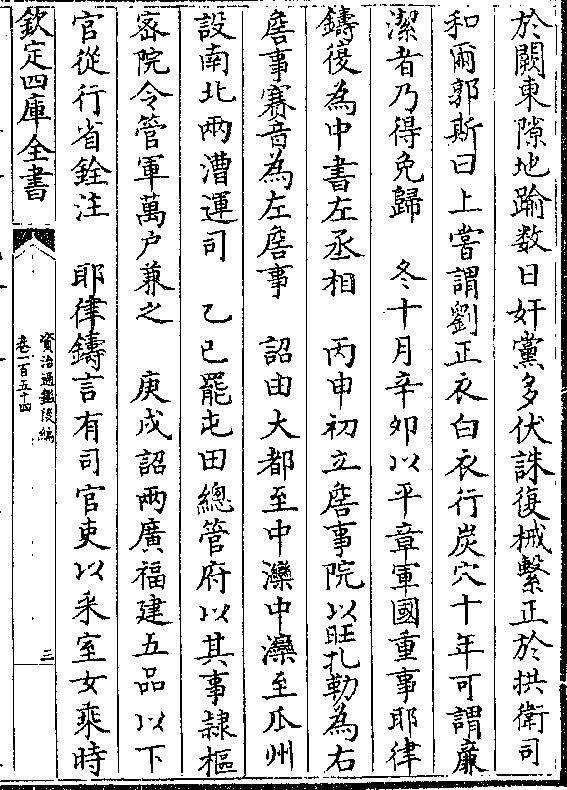 於闕東隙地踰数日奸黨多伏誅復械繫正於拱衛司
和爾郭斯曰上嘗謂劉正衣白衣行炭穴十年可謂廉
潔者乃得免歸　冬十月辛夘以平章軍國重事耶律
鑄復為中書左丞相　丙申初立詹事院以旺扎勒為右
詹事賽音為左詹事　詔由大都至中灤中灤至瓜州
設南北兩漕運司　乙巳罷屯田總管府以其事隷樞
宻院令管軍萬户兼之　庚戌詔兩廣福建五品以下
官從行省銓注　耶律鑄言有司官吏以采室女乘時
欽定四庫全書
資治通鑑後編
卷一百五十四
三